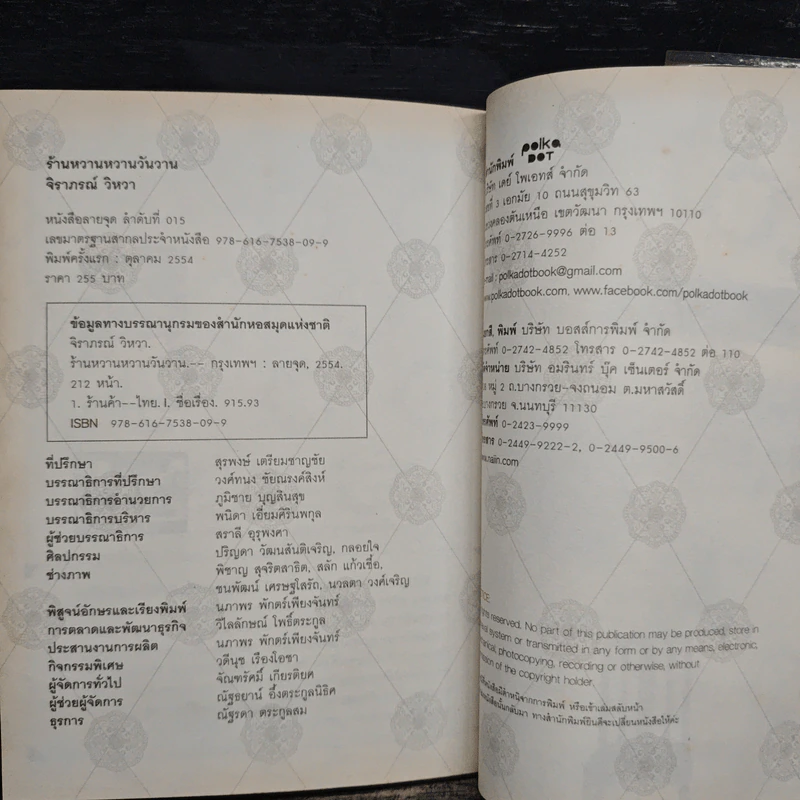 ร้านหวานหวานวันวาน
จิราภรณ์ วิหวา
หนังสือลายจุด ลำดับที่ 015
เลขมาตรฐานสากลประจำหนังสือ 978-616-7538-09-9
พิมพ์ครั้งแรก : ตุลาคม 2554
ราคา 255 บาท
ข้อมูลทางบรรณานุกรมของสำนักหอสมุดแห่งชาติ
จิราภรณ์ วิหวา.
ร้านหวานหวานวันวาน.-- กรุงเทพฯ : ลายจุด, 2554.
212 หน้า.
1. ร้านค้า--ไทย. I. ชื่อเรื่อง. 915.93
ISBN 978-616-7538-09-9
ที่ปรึกษา สุรพงษ์ เตรียมชาญชัย
บรรณาธิการที่ปรึกษา วงศ์ทนง ชัยณรงค์สิงห์
บรรณาธิการอำนวยการ ภูมิชาย บุญสินสุข
บรรณาธิการบริหาร พนิดา เอี่ยมศิรินพกุล
ผู้ช่วยบรรณาธิการ สราลี อุรุพงศา
ศิลปกรรม ปริญดา วัฒนสันติเจริญ, กลอยใจ
ช่างภาพ พิชาญ สุจริตสาธิต, สลัก แก้วเชื้อ,
ชนพัฒน์ เศรษฐโสรัถ, นวลตา วงศ์เจริญ
พิสูจน์อักษรและเรียงพิมพ์ นภาพร พักตร์เพียงจันทร์
การตลาดและพัฒนาธุรกิจ วิไลลักษณ์ โพธิ์ตระกูล
ประสานงานการผลิต นภาพร พักตร์เพียงจันทร์
กิจกรรมพิเศษ วดีนุช เรืองโอชา
ผู้จัดการทั่วไป จัณฑรัศมิ์ เกียรติยศ
ผู้ช่วยผู้จัดการ ณัฐธยาน์ อึ้งตระกูลนิธิศ
ธุรการ ณัฐรดา ตระกูลสม
polka DOT
เดย์ โพเอทส์ จำกัด
3 เอกมัย 10 ถนนสุขุมวิท 63
คลองตันเหนือ เขตวัฒนา กรุงเทพฯ 10110
0-2726-9996 ต่อ 13
0-2714-4252
polkadotbook@gmail.com
www.polkadotbook.com, www.facebook.com/polkadotbook
พิมพ์ บริษัท บอสส์การพิมพ์ จำกัด
0-2742-4852 โทรสาร 0-2742-4852 ต่อ 110
บริษัท อมรินทร์ บุ๊ค เซ็นเตอร์ จำกัด
หมู่ 2 ถ.บางกรวย-จงถนอม ต.มหาสวัสดิ์
จ.นนทบุรี 11130
0-2423-9999
0-2449-9222-2, 0-2449-9500-6
reserved. No part of this publication may be produced, store in
system or transmitted in any form or by any means, electronic,
photocopying, recording or otherwise, without
of the copyright holder.
หรือเข้าเล่มสลับหน้า
ทางสำนักพิมพ์ยินดีจะเปลี่ยนหนังสือให้ค่ะ